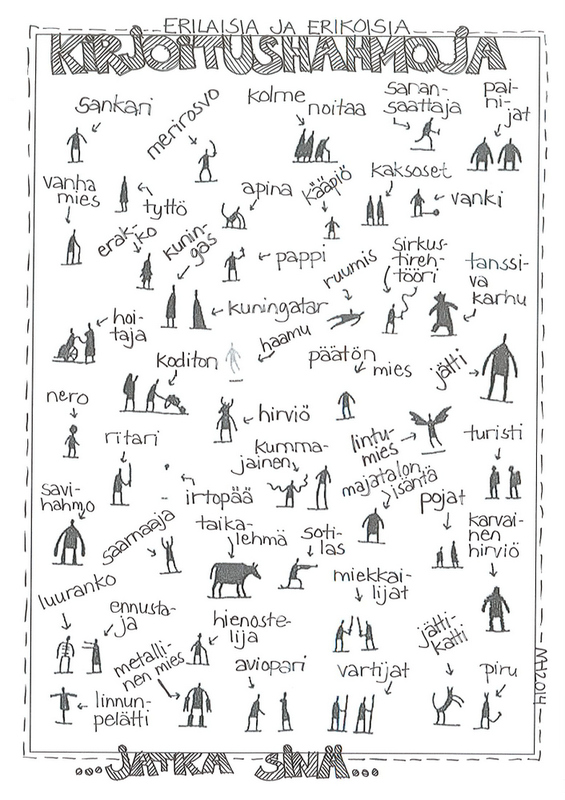 ERILAISIA JA ERIKOISIA
KIRJOITUSHAHMOJA
sankari
merirosvo
kolme
noitaa
sanan-
saattaja
pai-
ni-
jat
vanha
mies
tyttö
apina
kääpiö
kaksoset
vanki
erak-
ko
kunin-
gas
pappi
ruumis
sirkus-
tireh-
tööri
tanssi-
va
karhu
hoi-
taja
kuningatar
haamu
koditon
päätön
mies
jätti
nero
hirviö
ritari
kumma-
jainen
lintu-
mies
turisti
irtopää
majatalon
isäntä
savi-
hahmo
saarnaaja
taika-
lehmä
soti-
las
pojat
karvai-
nen
hirviö
luuranko
ennusta-
ja
hienoste-
lija
miekkai-
lijat
jätti-
katti
metalli-
nen mies
aviopari
vartijat
piru
linnun-
pelätti
MH2014
...JATKA SINÄ...